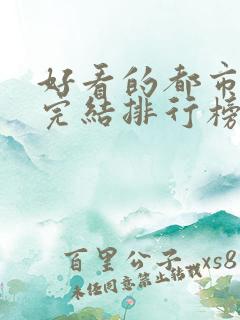 好看的都市
完结排行榜
百里公子 xs8
未经同意禁止转载